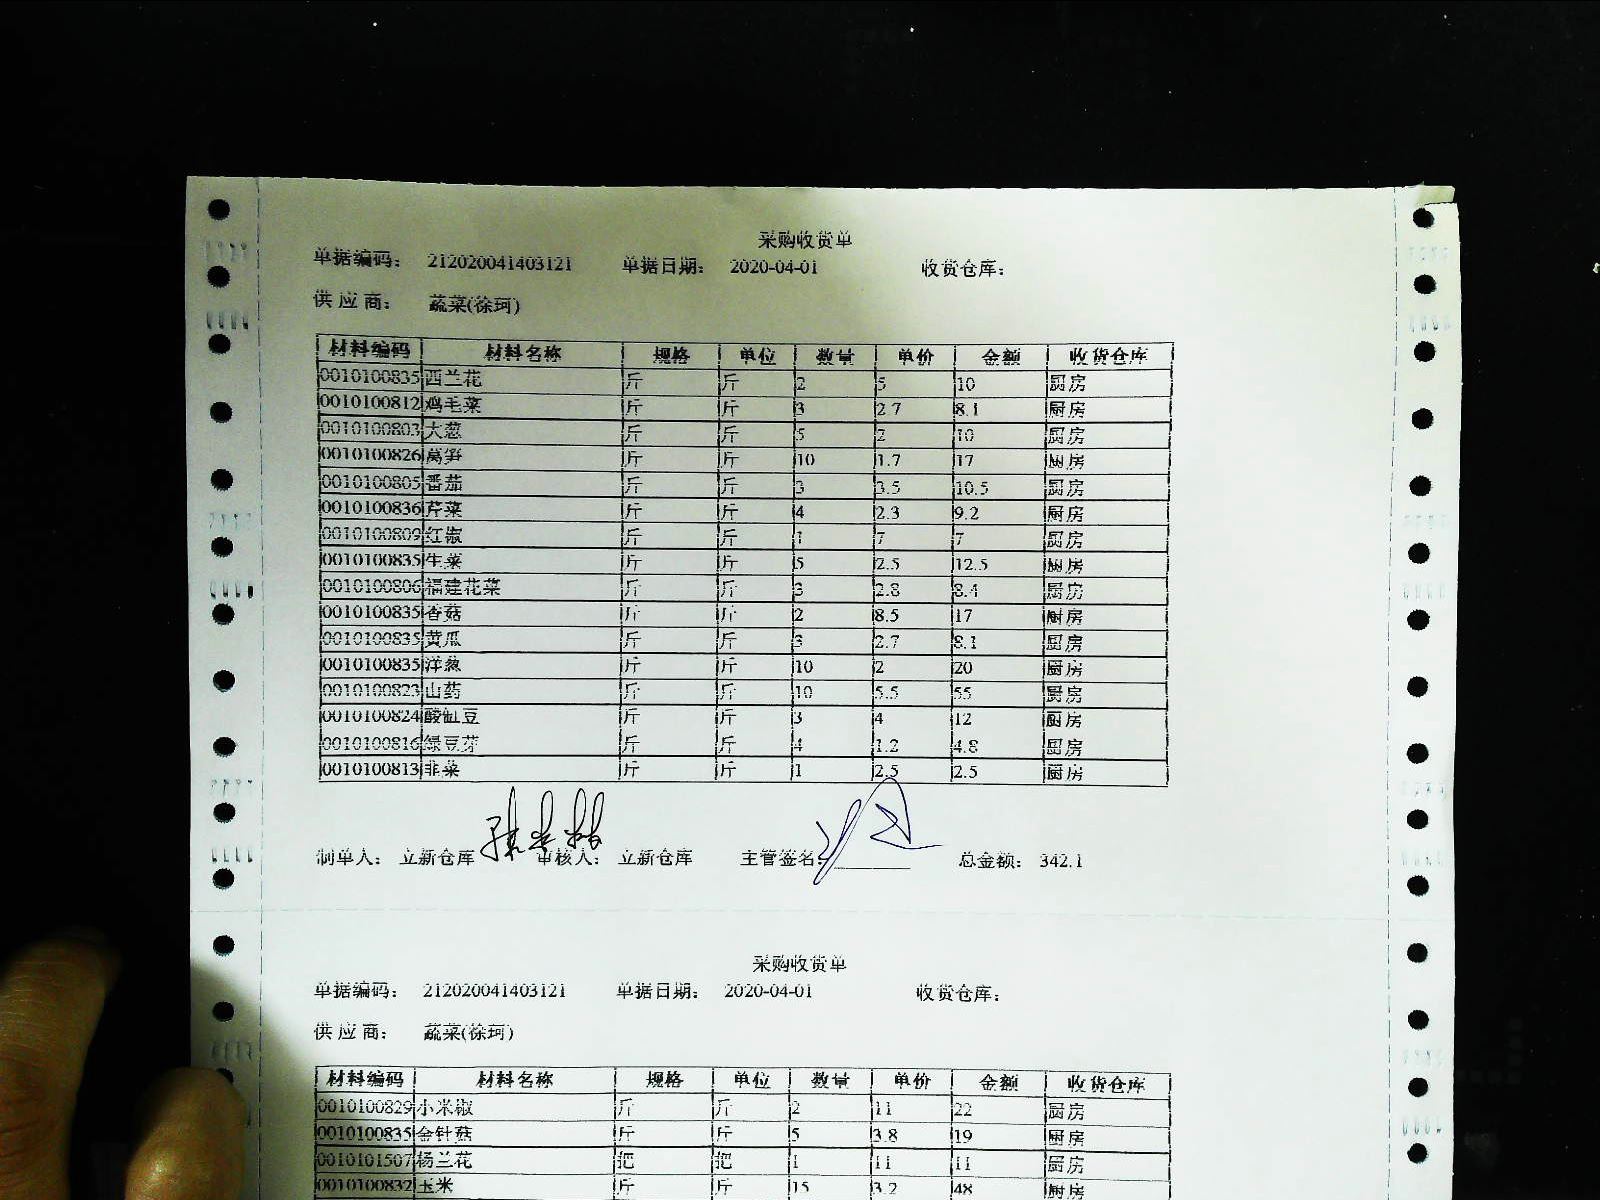 采购收货单
单据编码： 212020041403121 单据日期： 2020-04-01 收货仓库：
供 应 商： 蔬菜(徐珂)
材料编码 材料名称 规格 单位 数量 单价 金额 收货仓库
0010100835 西兰花 斤 斤 2 5 10 厨房
0010100812 鸡毛菜 斤 斤 3 2.7 8.1 厨房
0010100803 大葱 斤 斤 5 2 10 厨房
0010100826 莴笋 斤 斤 10 1.7 17 厨房
0010100805 番茄 斤 斤 3 3.5 10.5 厨房
0010100836 芹菜 斤 斤 4 2.3 9.2 厨房
0010100809 红椒 斤 斤 1 7 7 厨房
0010100835 生菜 斤 斤 5 2.5 12.5 厨房
0010100806 福建花菜 斤 斤 3 2.8 8.4 厨房
0010100835 香菇 斤 斤 2 8.5 17 厨房
0010100835 黄瓜 斤 斤 3 2.7 8.1 厨房
0010100835 洋葱 斤 斤 10 2 20 厨房
0010100823 山药 斤 斤 10 5.5 55 厨房
0010100824 酸豇豆 斤 斤 3 4 12 厨房
0010100816 绿豆芽 斤 斤 4 1.2 4.8 厨房
0010100813 韭菜 斤 斤 1 2.5 2.5 厨房
制单人： 立新仓库 审核人： 立新仓库 主管签名： 总金额： 342.1
采购收货单
单据编码： 212020041403121 单据日期： 2020-04-01 收货仓库：
供 应 商： 蔬菜(徐珂)
材料编码 材料名称 规格 单位 数量 单价 金额 收货仓库
0010100829 小米椒 斤 斤 2 11 22 厨房
0010100835 金针菇 斤 斤 5 3.8 19 厨房
0010101507 杨兰花 把 把 1 11 11 厨房
0010100832 玉米 斤 斤 15 3.2 48 厨房